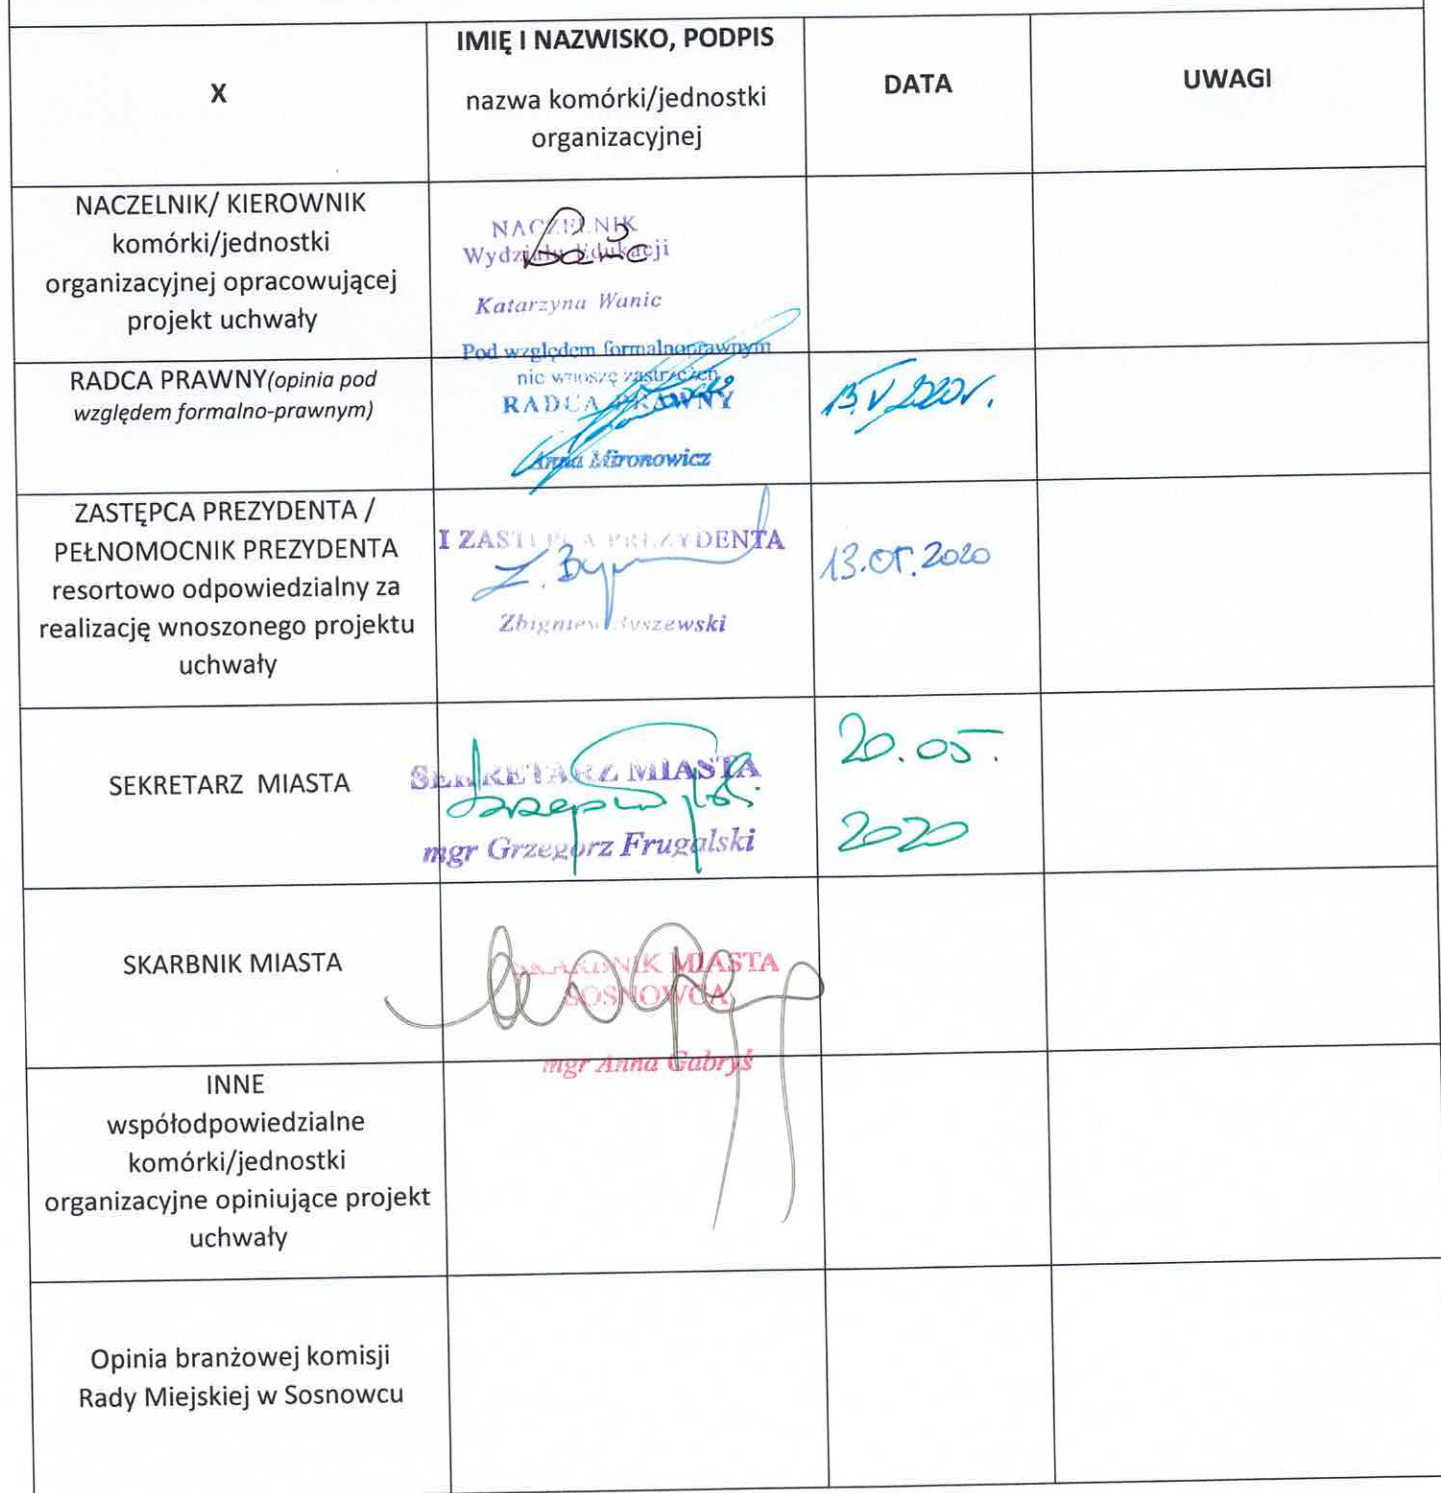 X
IMIĘ I NAZWISKO, PODPIS
nazwa komórki/jednostki
organizacyjnej
DATA
UWAGI
NACZELNIK/ KIEROWNIK
komórki/jednostki
organizacyjnej opracowującej
projekt uchwały
NACZELNIK
Wydziału Edukacji
Katarzyna Wanic
RADCA PRAWNY(opinia pod
względem formalno-prawnym)
Pod względem formalnoprawnym
nie wnoszę zastrzeżeń
RADCA PRAWNY
Anna Mironowicz
V 2020r.
ZASTĘPCA PREZYDENTA /
PEŁNOMOCNIK PREZYDENTA
resortowo odpowiedzialny za
realizację wnoszonego projektu
uchwały
I ZASTĘPCA PREZYDENTA
Zbigniew Byszewski
13.05.2020
SEKRETARZ MIASTA
SEKRETARZ MIASTA
mgr Grzegorz Frugalski
20.05.
2020
SKARBNIK MIASTA
SKARBNIK MIASTA
SOSNOWCA
mgr Anna Gabryś
INNE
współodpowiedzialne
komórki/jednostki
organizacyjne opiniujące projekt
uchwały
Opinia branżowej komisji
Rady Miejskiej w Sosnowcu